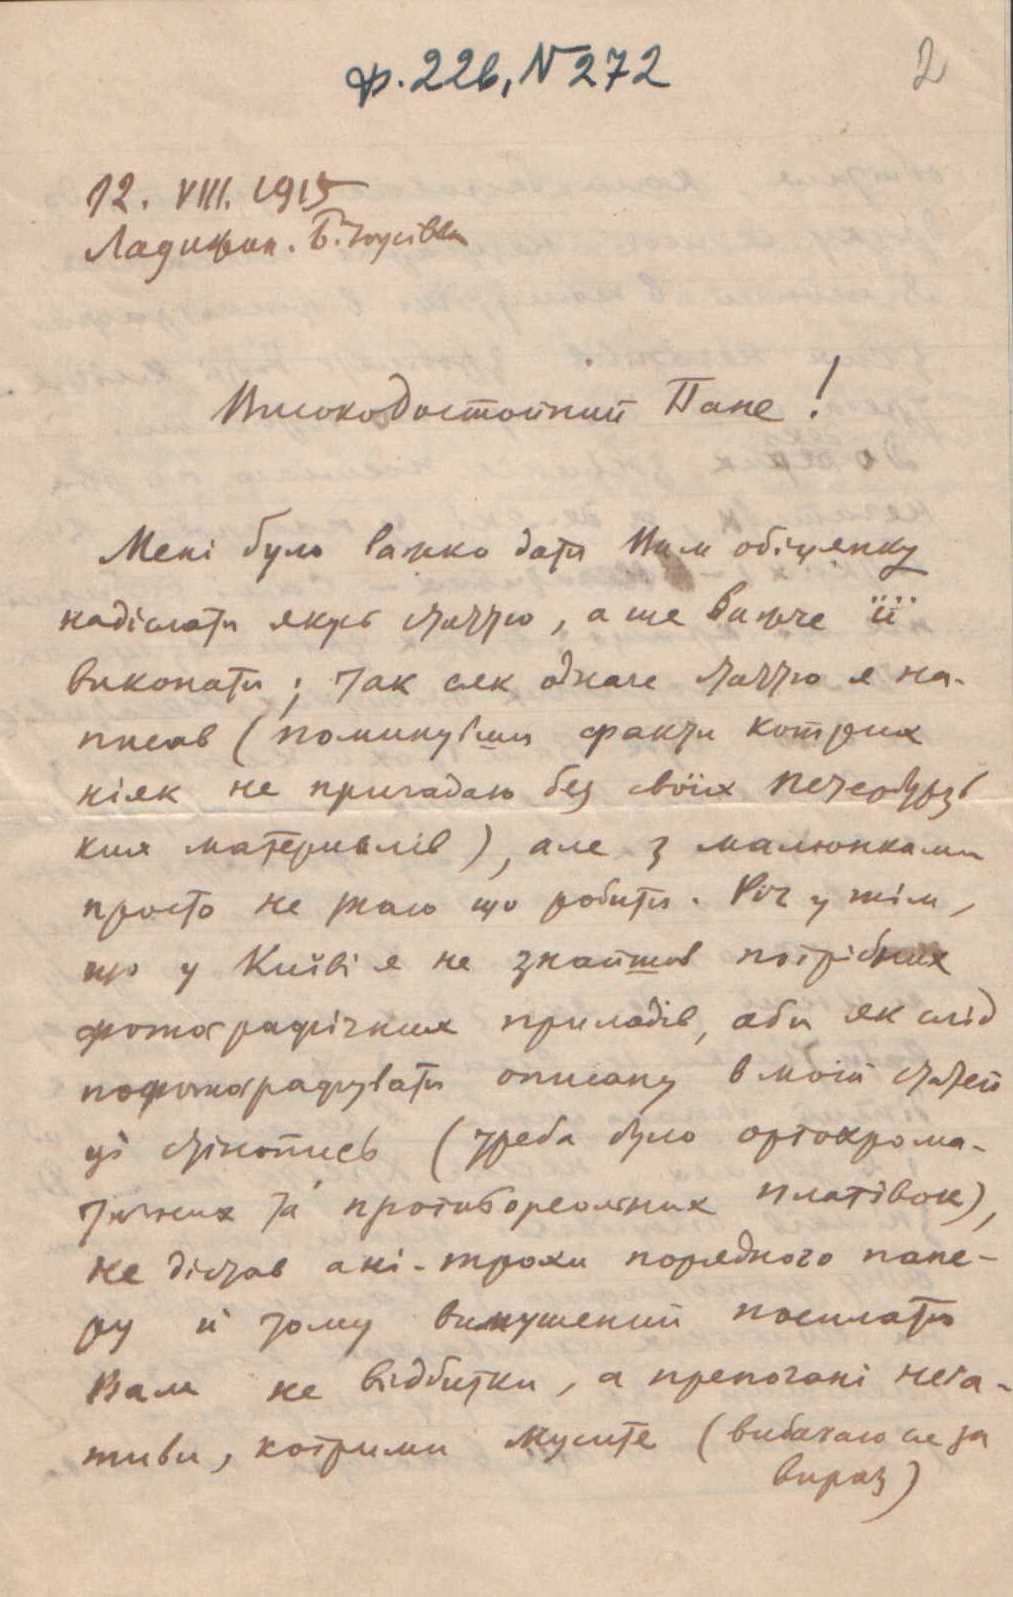 ф. 226, N 272
2
12. VIII. 1915
Ладижин.
Високодостойний Пане!
Мені було важко дати Вам обіцянку
надіслати якусь статтю, а ще важче її
виконати; так сяк одначе статтю я на-
писав (поминувши факти котрих
ніяк не пригадаю без своїх петербурзь
ких матеріялів), але з малюнками
просто не знаю що робити. Річ у тім,
що у Київі я не знайшов потрібних
фотографічних приладів, аби як слід
пофотографувати описану в моїй статей
ці стінопись (треба було ортохрома-
тичних та протибореольних платівок),
не дістав ані-трохи порядного папе-
ру й тому вимушений посилати
Вам не відбитки, а препогані нега-
тиви, котрими мусите (вибачаюся за
вираз)